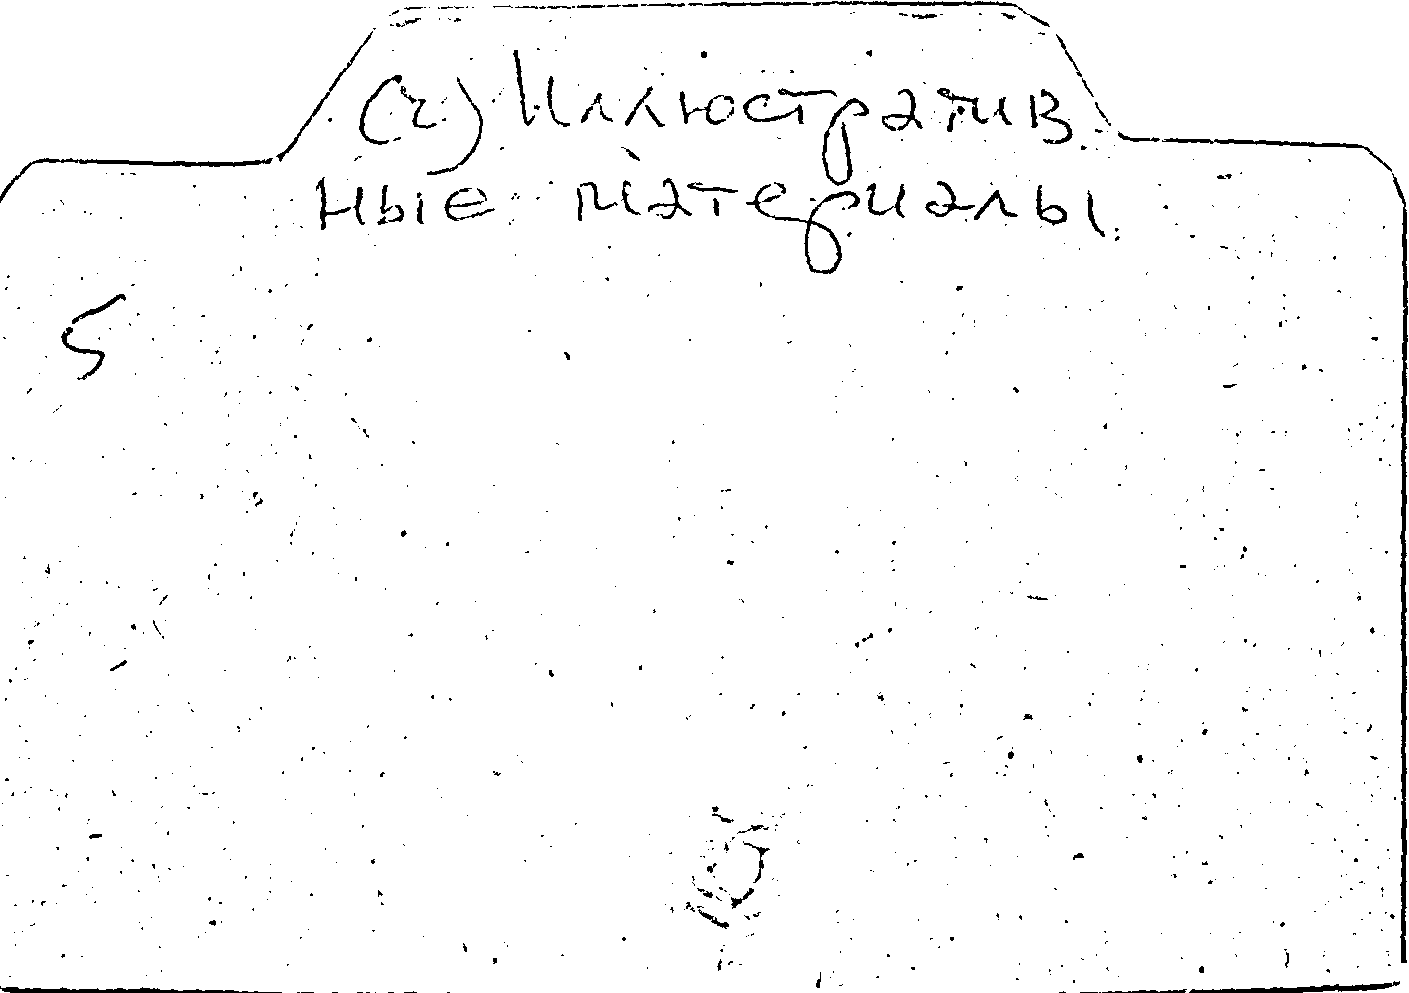 (г) Иллюстратив
ные материалы
5